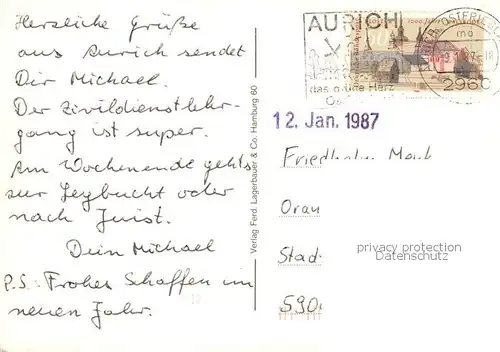 Herzliche Grüße
aus Aurich sendet
Dir Michael.
Der Zivildienstlehr-
gang ist super.
Am Wochenende gehts
zur Leybucht oder
nach Juist.
Dein Michael
P.S.: Frohes Schaffen im
neuen Jahr.
Verlag Ferd. Lagerbauer & Co. Hamburg 60
AURICH
das grüne Herz
2960
12. Jan. 1987
Stadt
590
privacy protection
Datenschutz